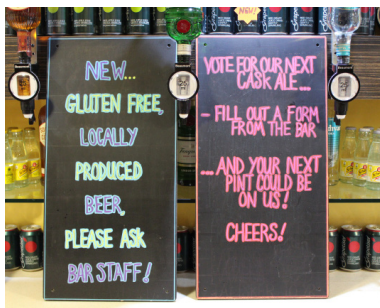 NEW...
GLUTEN FREE,
LOCALLY
PRODUCED
BEER,
PLEASE ASK
BAR STAFF!
VOTE FOR OUR NEXT
CASK ALE...
- FILL OUT A FORM
FROM THE BAR
... AND YOUR NEXT
PINT COULD BE
ON US!
CHEERS!
NEW!